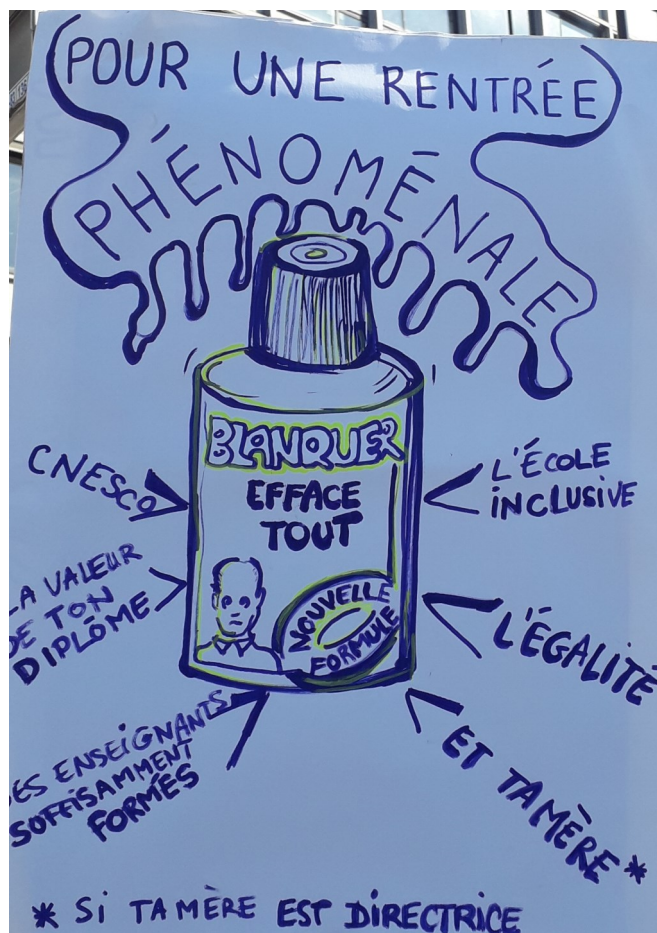 POUR UNE RENTRÉE
PHÉNOMÉNALE
BLANQUER
EFFACE
TOUT
NOUVELLE
FORMULE
CNESCO
LA VALEUR
DE TON
DIPLÔME
DES ENSEIGNANTS
SUFFISAMMENT
FORMÉS
L'ÉCOLE
INCLUSIVE
L'ÉGALITÉ
ET TA MÈRE*
* SI TA MÈRE EST DIRECTRICE